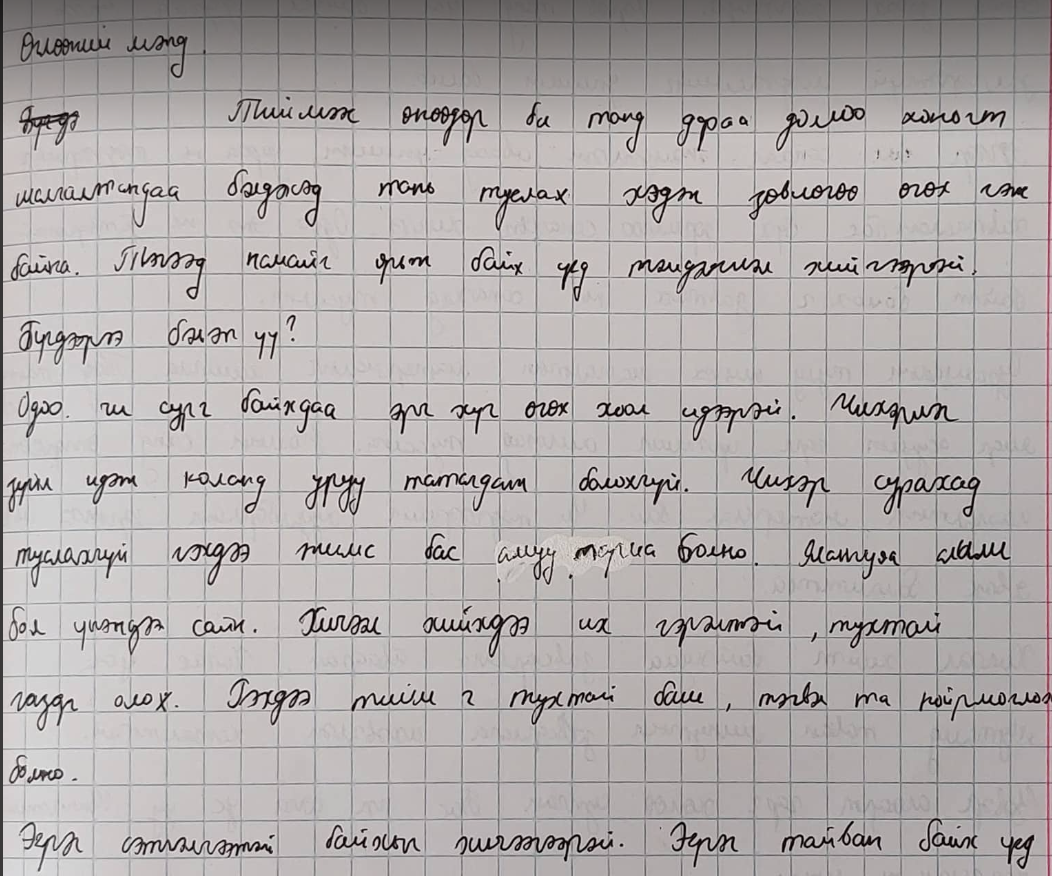 Өглөөний мэнд.
Тиймэж өнөөдөр би танд дараа долоо хоногт
шалгалтандаа бэлдэхэд тань туслах хэдэн зөвлөгөө өгөх гэж
байна. Тэгээд намайг ярьж байх үед тэмдэглэл хийгээрэй.
Бүгдээрээ бэлэн үү?
Одоо. чи сурч байхдаа эрч хүч өгөх хоол идээрэй. Чихэрлэг
зүйл идэж колонд уруу татагдаж болохгүй. Чихэр сурахад
туслахгүй гэхдээ жимс бас самар туслах болно. Ялангуяа алим
бол үнэндээ сайн. Хичээл хийхдээ их гэрэлтэй, тухтай
газар олох. Гэхдээ тийм ч тухтай биш, тэгвэл та нойрмоглох
болно.
Эерэг сэтгэлгээтэй байхыг хичээгээрэй. Эерэг тайван байх үед